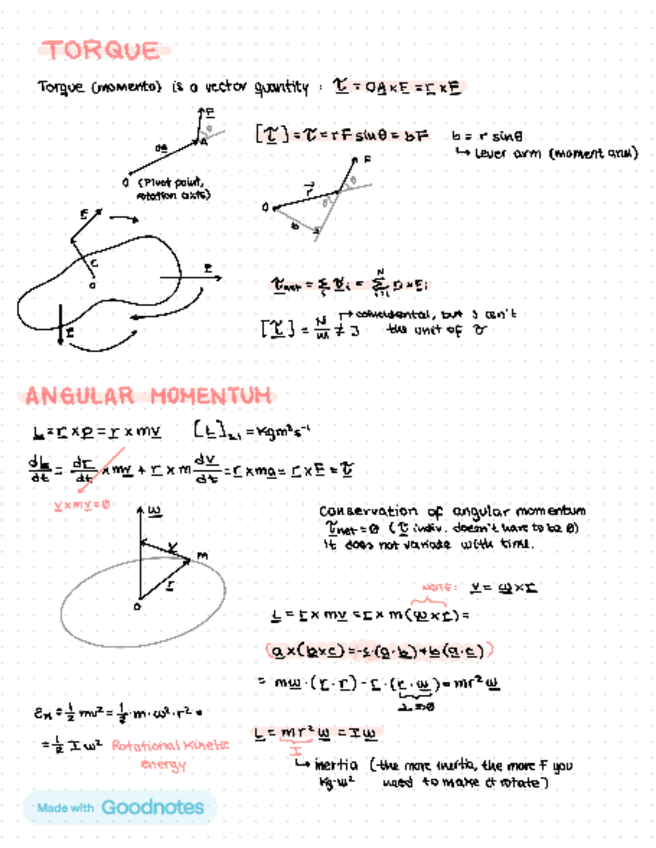 TORQUE
Torque (momento) is a vector quantity : τ = OA × F = r × F
F
θ
A
OA
O (Pivot point, rotation axis)
[τ] = τ = r F sinθ = bF
b = r sinθ
↳ Lever arm (moment arm)
F
r
θ
θ
O
b
F
C
O
F
F
τnet = Σ τi = Σ ri × Fi
[τ] = N m ≠ J
↱ coincidental, but J isn't
the unit of τ
ANGULAR MOMENTUM
L = r × p = r × mv
[L] = kg m² s⁻¹
dL/dt = dr/dt × mv + r × m dv/dt = r × ma = r × F = τ
v × mv = 0
ω
v
m
r
O
Conservation of angular momentum
τnet = 0 (τ indiv. doesn't have to be 0)
It does not variate with time.
NOTE: v = ω × r
L = r × mv = r × m(ω × r) =
(a × (b × c) = -c·(a·b) + b(a·c))
= mω·(r·r) - r·(r·ω) = mr²ω
εk = ½ mv² = ½·m·ω²·r² =
= ½ I ω² Rotational kinetic
energy
L = mr² ω = Iω
I
↳ inertia (the more inertia, the more F you
need to make it rotate)
Made with Goodnotes